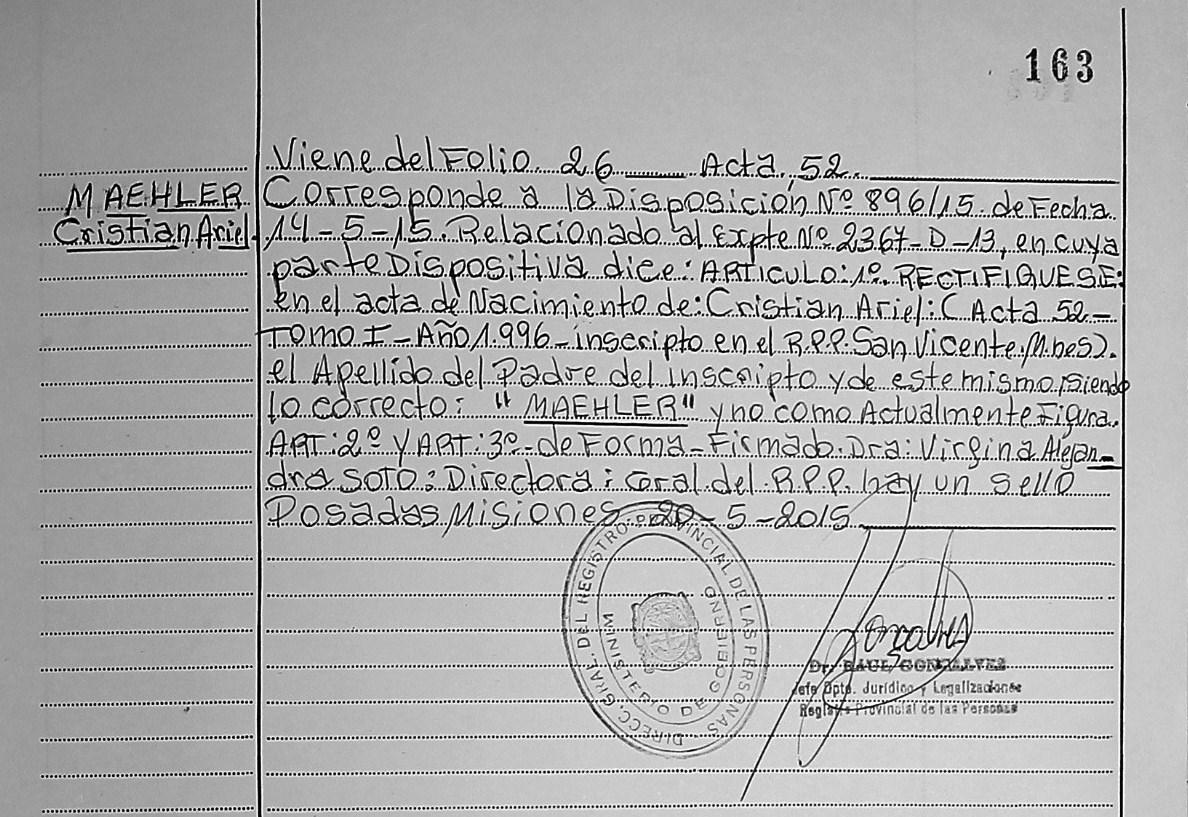 163
Viene del Folio 26 ___ Acta 52.
MAEHLER
Cristian Ariel.
Corresponde a la Disposición Nº 896/15 de Fecha
14-5-15. Relacionado al Expte Nº 2367-D-13, en cuya
parte Dispositiva dice: ARTICULO: 1º. RECTIFIQUESE:
en el acta de Nacimiento de: Cristian Ariel: ( Acta 52-
Tomo I - Año 1.996 - inscripto en el R.P.P. San Vicente. Mnes).
el Apellido del Padre del inscripto y de este mismo, siendo
lo correcto: "MAEHLER" y no como Actualmente Figura.
ART: 2º y ART: 3º- de Forma - Firmado. Dra: Virgina Alejan-
dra SOTO: Directora: Gral. del R.P.P. hay un sello
Posadas, Misiones 20-5-2015
DIRECC. GRAL. DEL REGISTRO PROVINCIAL DE LAS PERSONAS
MINISTERIO DE GOBIERNO
Dr. RAUL GONZALVEZ
Jefe Dpto. Jurídico y Legalizaciones
Registro Provincial de las Personas